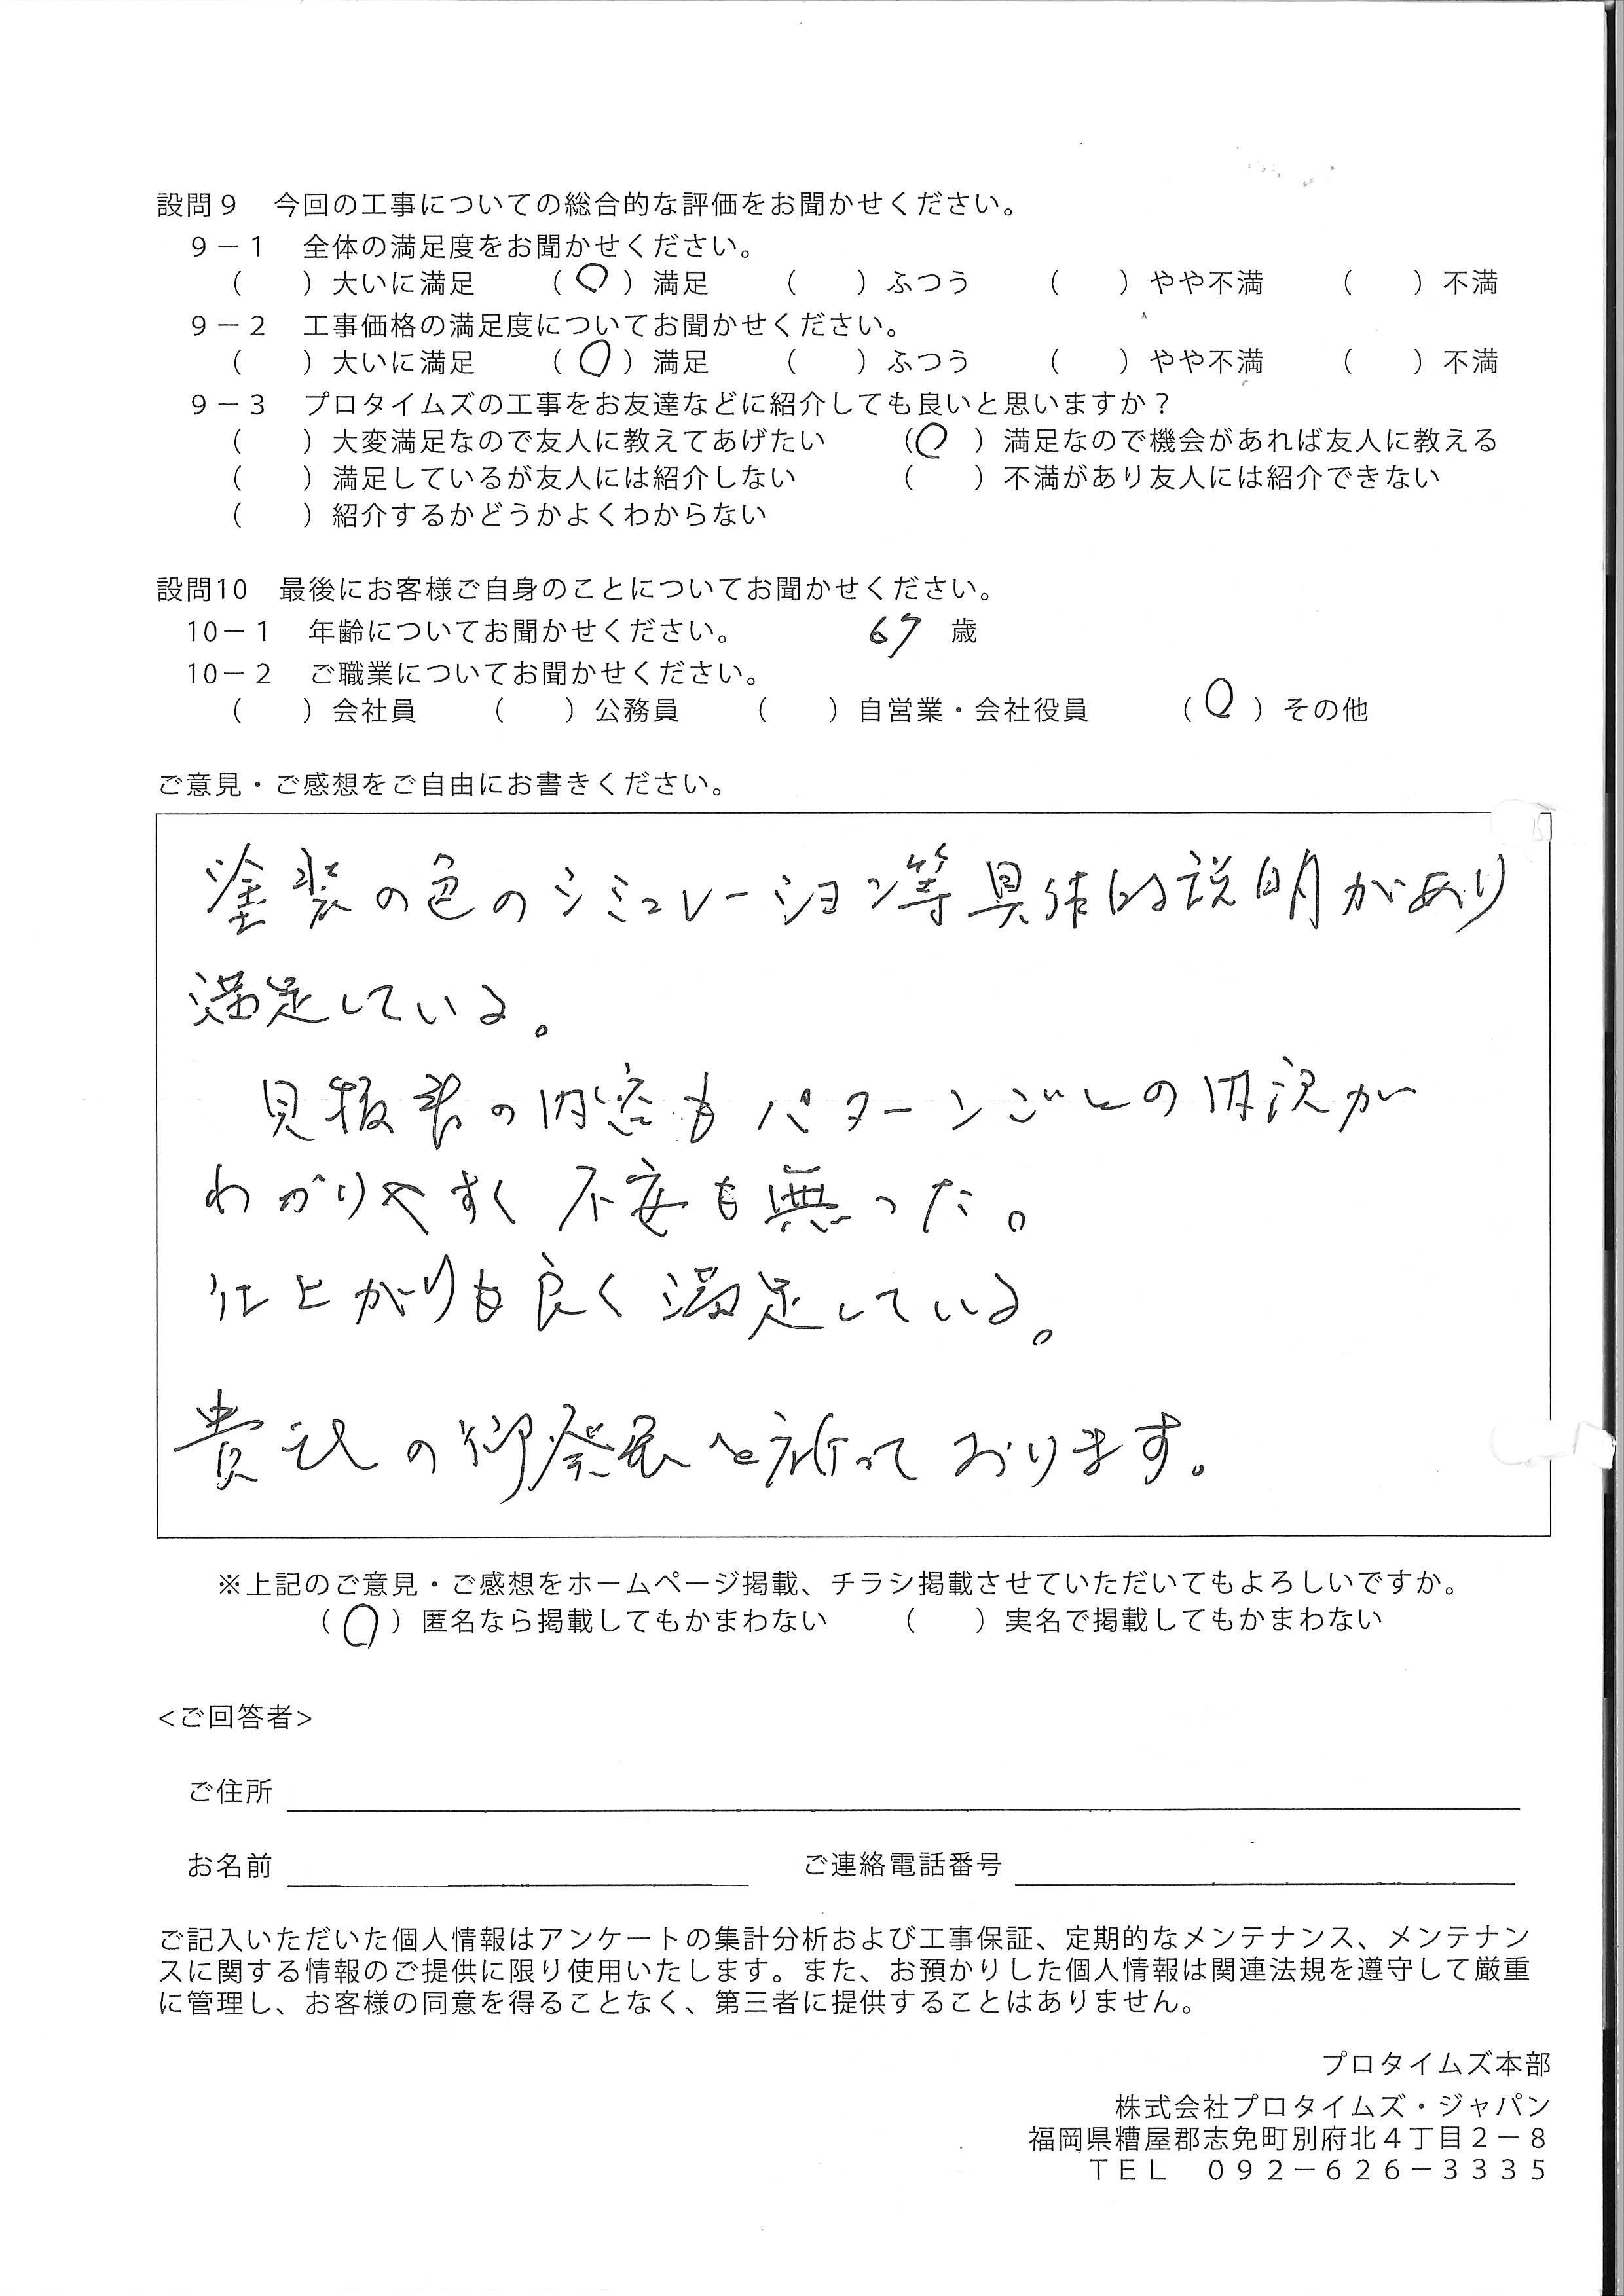 設問９　今回の工事についての総合的な評価をお聞かせください。
９－１　全体の満足度をお聞かせください。
（　　）大いに満足　　（○）満足　　（　　）ふつう　　（　　）やや不満　　（　　）不満
９－２　工事価格の満足度についてお聞かせください。
（　　）大いに満足　　（○）満足　　（　　）ふつう　　（　　）やや不満　　（　　）不満
９－３　プロタイムズの工事をお友達などに紹介しても良いと思いますか？
（　　）大変満足なので友人に教えてあげたい　　（○）満足なので機会があれば友人に教える
（　　）満足しているが友人には紹介しない　　（　　）不満があり友人には紹介できない
（　　）紹介するかどうかよくわからない
設問10　最後にお客様ご自身のことについてお聞かせください。
10－１　年齢についてお聞かせください。　　67　歳
10－２　ご職業についてお聞かせください。
（　　）会社員　　（　　）公務員　　（　　）自営業・会社役員　　（○）その他
ご意見・ご感想をご自由にお書きください。
塗装の色のシミュレーション等具体的説明があり
満足している。
見積書の内容もパターンごとの内訳が
わかりやすく不安も無った。
仕上がりも良く満足している。
貴社の御発展を祈っております。
※上記のご意見・ご感想をホームページ掲載、チラシ掲載させていただいてもよろしいですか。
（○）匿名なら掲載してもかまわない　　（　　）実名で掲載してもかまわない
<ご回答者>
ご住所
お名前　　ご連絡電話番号
ご記入いただいた個人情報はアンケートの集計分析および工事保証、定期的なメンテナンス、メンテナン
スに関する情報のご提供に限り使用いたします。また、お預かりした個人情報は関連法規を遵守して厳重
に管理し、お客様の同意を得ることなく、第三者に提供することはありません。
プロタイムズ本部
株式会社プロタイムズ・ジャパン
福岡県糟屋郡志免町別府北４丁目２－８
ＴＥＬ　０９２－６２６－３３３５